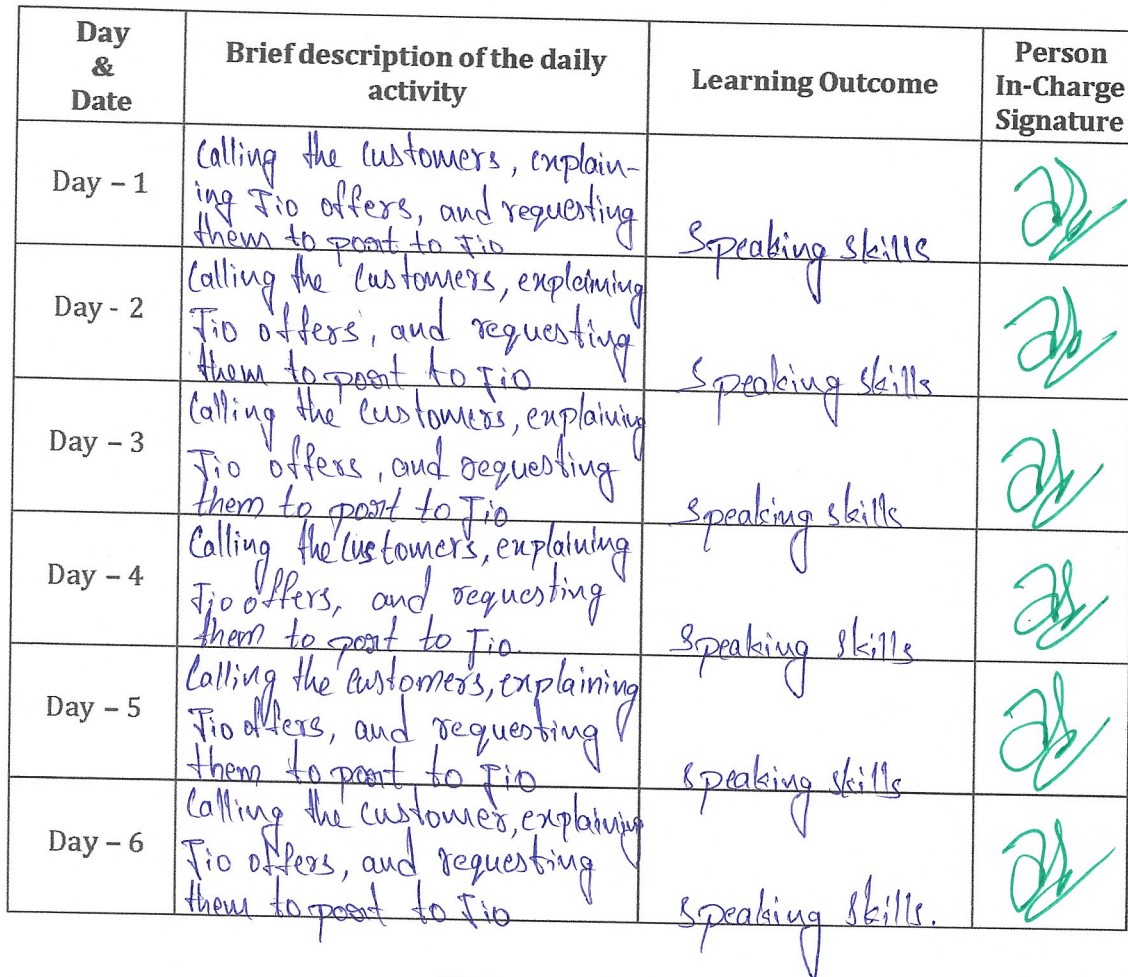 Day
&
Date
Brief description of the daily
activity
Learning Outcome
Person
In-Charge
Signature
Day – 1
Calling the customers, explain-
ing Jio offers, and requesting
them to port to Jio
Speaking skills
Day - 2
Calling the customers, explaining
Jio offers, and requesting
them to port to Jio
Speaking skills
Day – 3
Calling the customers, explaining
Jio offers, and requesting
them to port to Jio
Speaking skills
Day – 4
Calling the customers, explaining
Jio offers, and requesting
them to port to Jio.
Speaking skills
Day – 5
Calling the customers, explaining
Jio offers, and requesting
them to port to Jio
Speaking skills
Day – 6
Calling the customer, explaining
Jio offers, and requesting
them to port to Jio
Speaking skills.